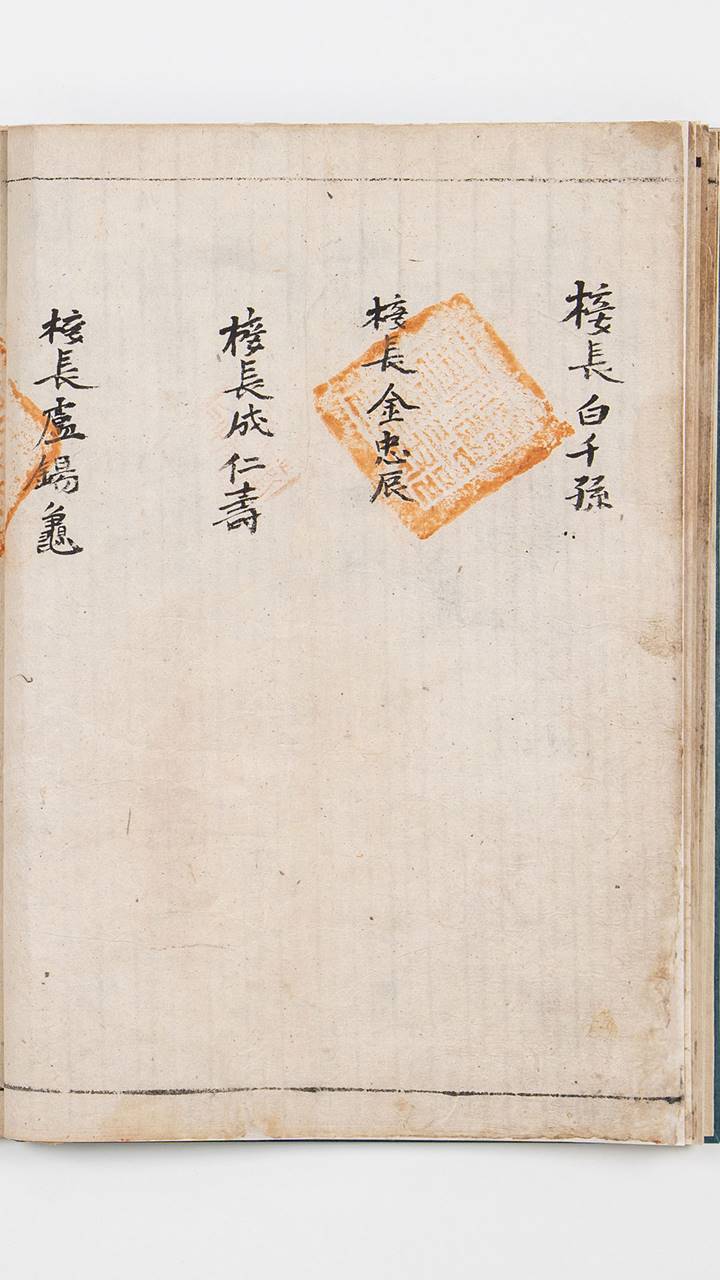 椄長白千孫
椄長金忠辰
椄長成仁壽
椄長盧錫龜